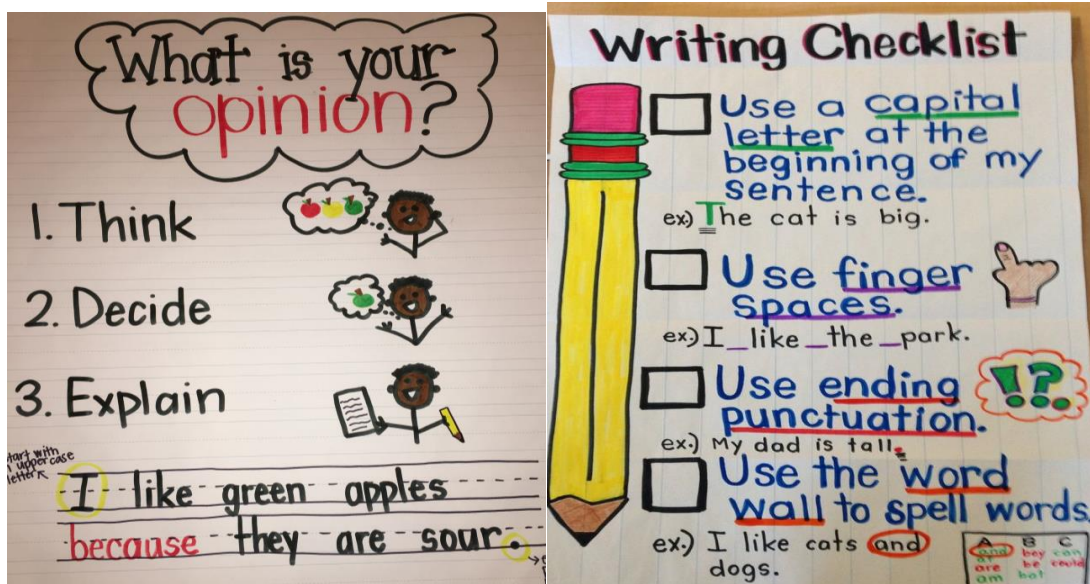 What is your
opinion?
1. Think
2. Decide
3. Explain
uppercase
letter
I like green apples
because they are sour.
Writing Checklist
Use a capital
letter at the
beginning of my
sentence.
ex.) The cat is big.
Use finger
spaces.
ex.) I _ like _ the _ park.
Use ending
punctuation.
! ? .
ex.) My dad is tall.
Use the word
wall to spell words
ex.) I like cats and
dogs.
A B C
and bey can
are be
am bat